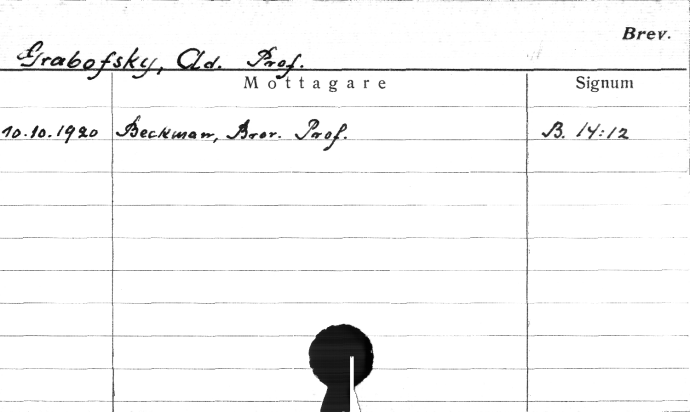 Brev.
Grabofsky, Ad. Prof.
Mottagare Signum
10.10.1920 Beckman, Bror. Prof. B. 14:12